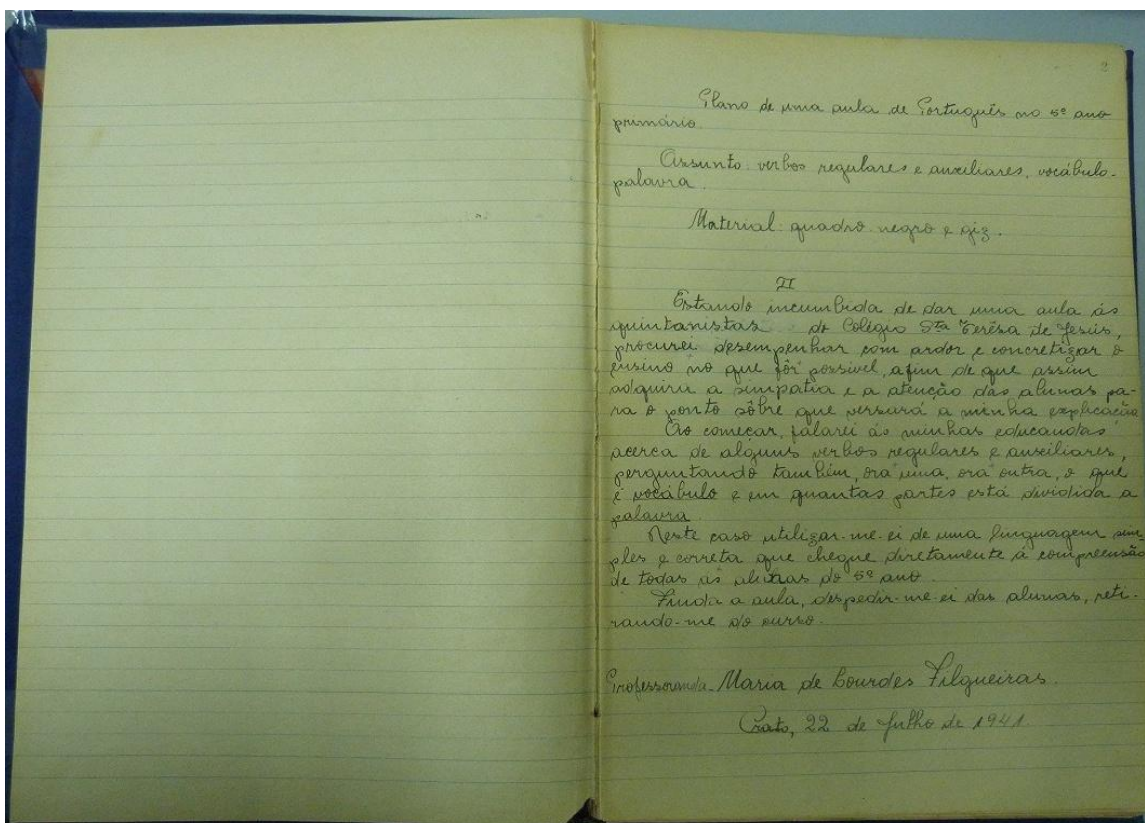 2
Plano de uma aula de Português no 5º ano
primário.
Assunto: verbos regulares e auxiliares, vocábulo-
palavra.
Material: quadro-negro e giz.
II
Estando incumbida de dar uma aula ás
quintanistas do Colégio Sta Terêsa de Jesús,
procurei desempenhar com ardor e concretizar o
ensino no que fôr possivel, afim de que assim
adquirir a simpatia e a atenção das alunas pa-
ra o ponto sôbre que versará a minha explicação.
Ao começar, falarei ás minhas educandas
acerca de alguns verbos regulares e auxiliares,
perguntando também, ora uma, ora outra, o que
é vocábulo e em quantas partes está dividida a
palavra.
Neste caso utilizar-me-ei de uma linguagem sim-
ples e correta que chegue diretamente á compreensão
de todas as alunas do 5º ano.
Finda a aula, despedir-me-ei das alunas, reti-
rando-me do curso.
Professoranda-Maria de Lourdes Filgueiras.
Crato, 22 de Julho de 1941